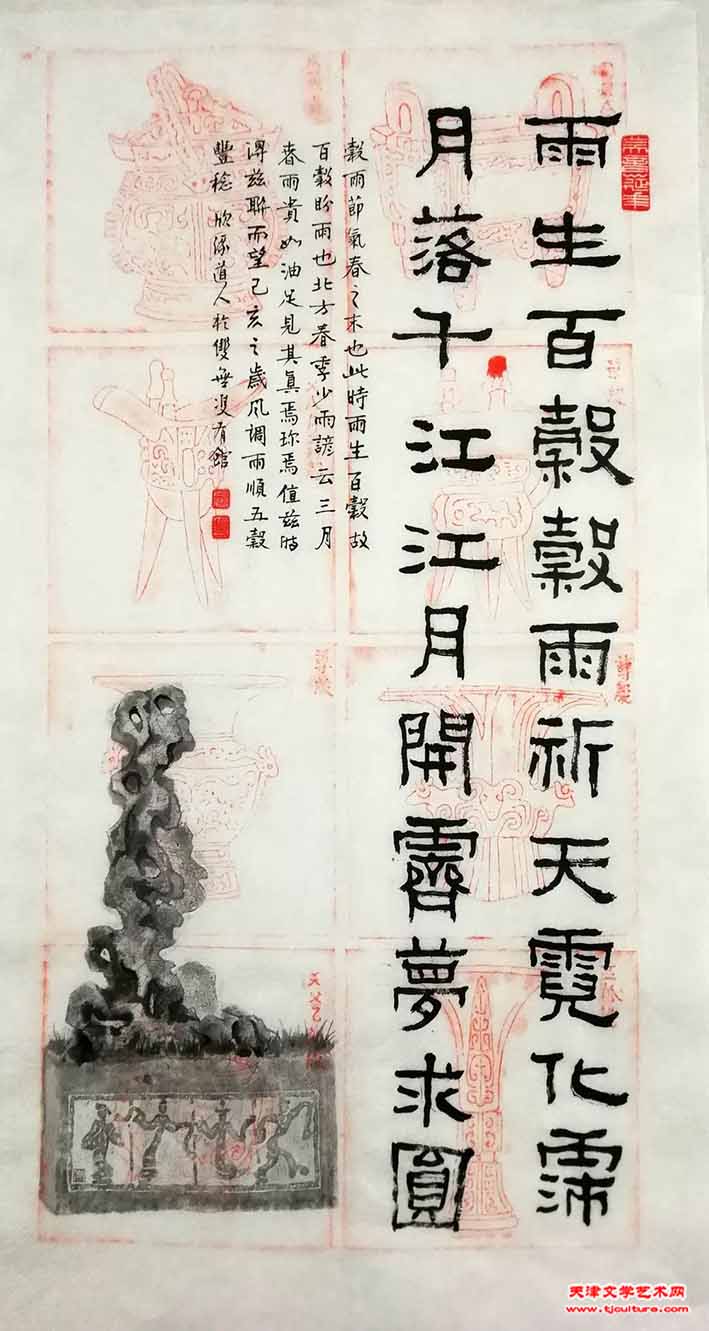 雨生百穀穀雨祈天霓化霈
月落千江江月開霽夢求圓
穀雨節氣春之末也此時雨生百穀故
百穀盼雨也北方春季少雨諺云三月
春雨貴如油足見其真焉珍焉值兹時
得兹聯而望己亥之歲風調雨順五穀
豐稔 道人於雙無
天津文学艺术网
www.tjculture.com